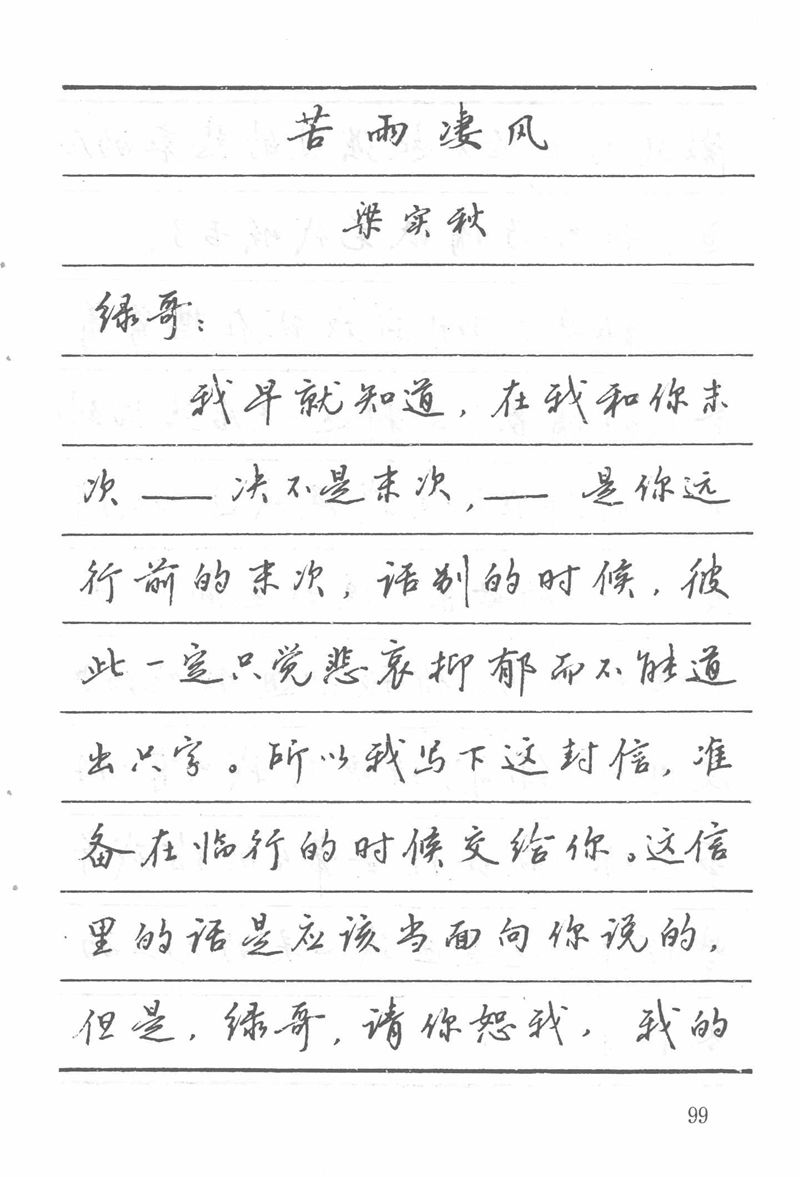 苦雨凄风
梁实秋
绿哥：
我早就知道，在我和你末
次——决不是末次，——是你远
行前的末次，话别的时候，彼
此一定只觉悲哀抑郁而不能道
出只字。所以我写下这封信，准
备在临行的时候交给你。这信
里的话是应该当面向你说的，
但是，绿哥，请你恕我，我的
99